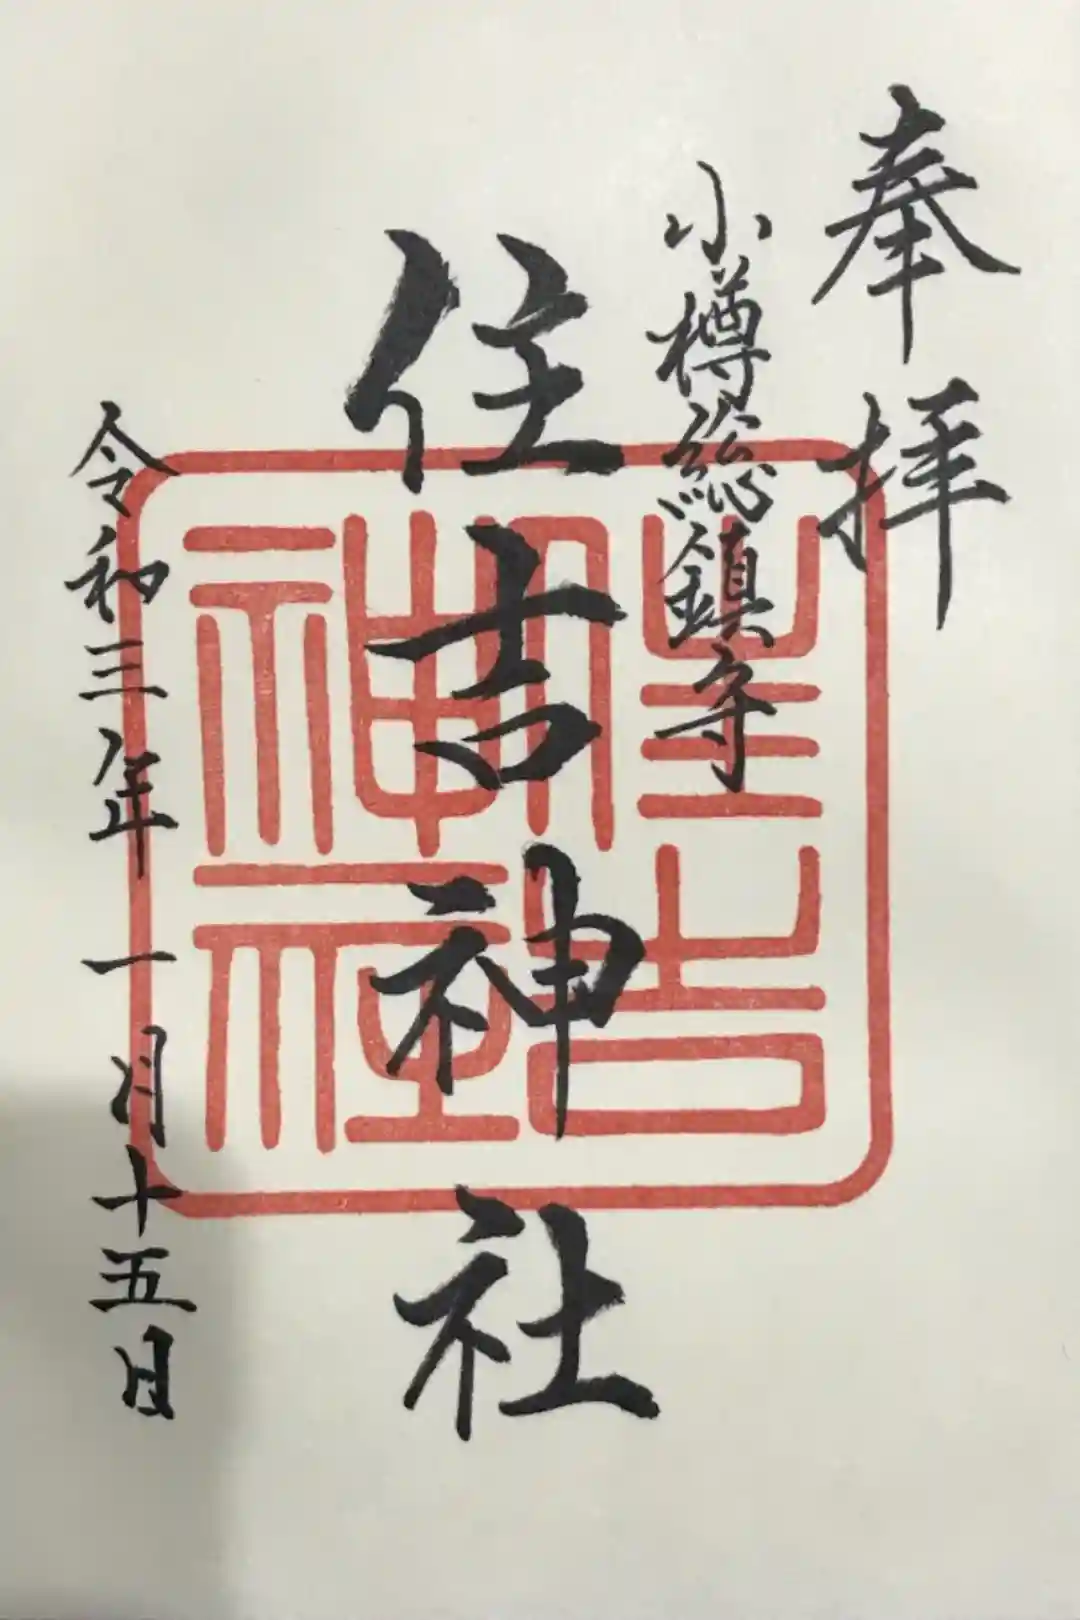 奉拝
小樽総鎮守
住吉神社
住吉神社
令和三年一月十五日